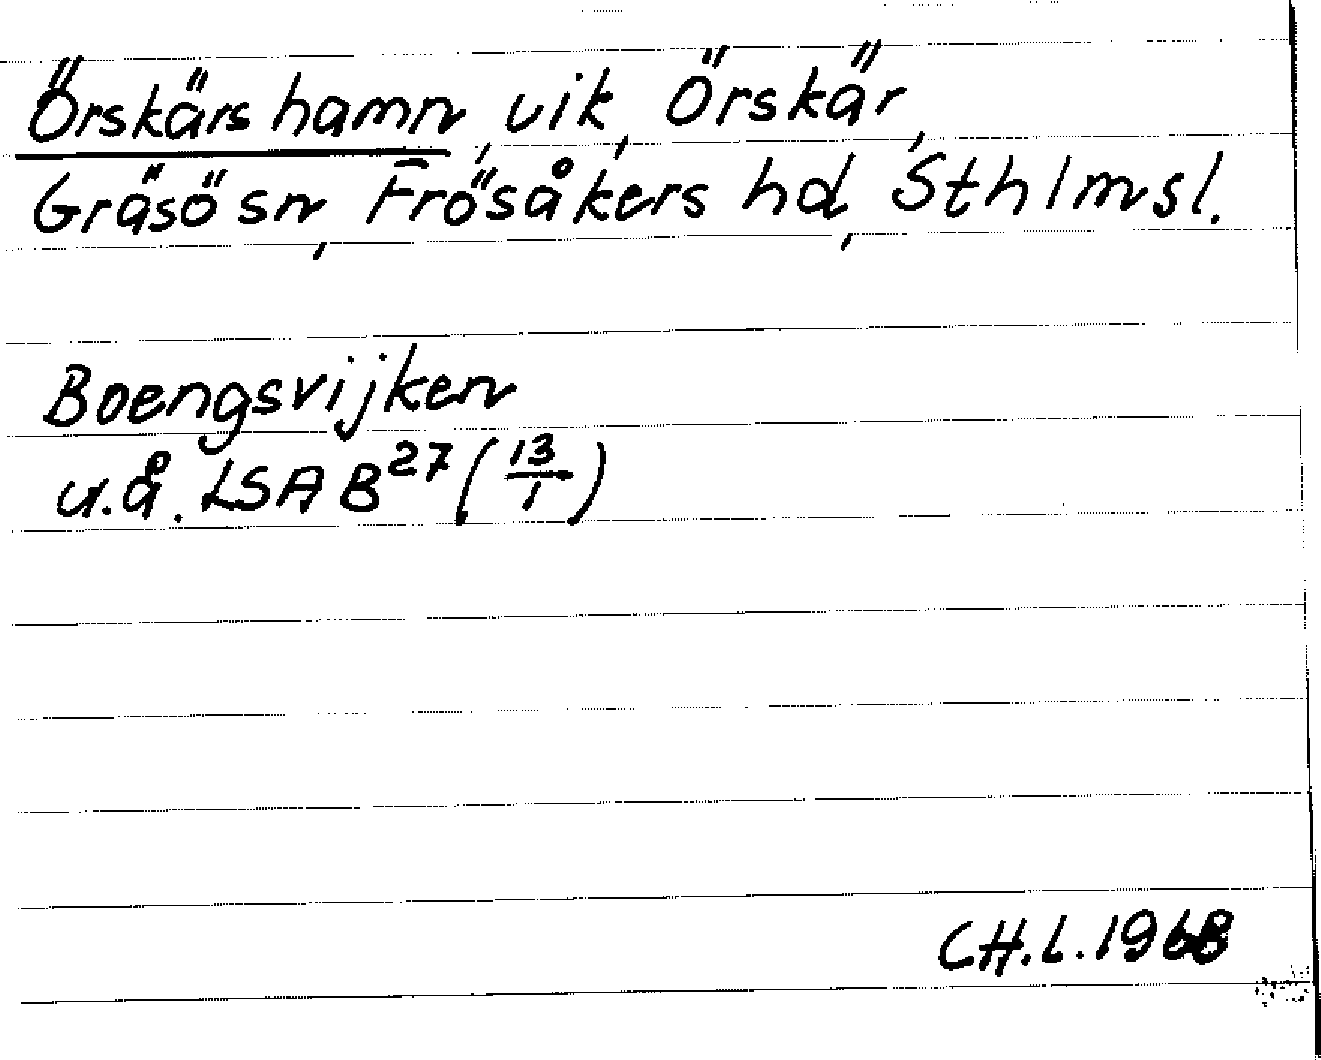 Örskärshamn, vik, Örskär,
Gräsö sn, Frösåkers hd, Sthlmsl.
Boengsvijken
u.å. LSA B²⁷ (13/1)
CH.L. 1968